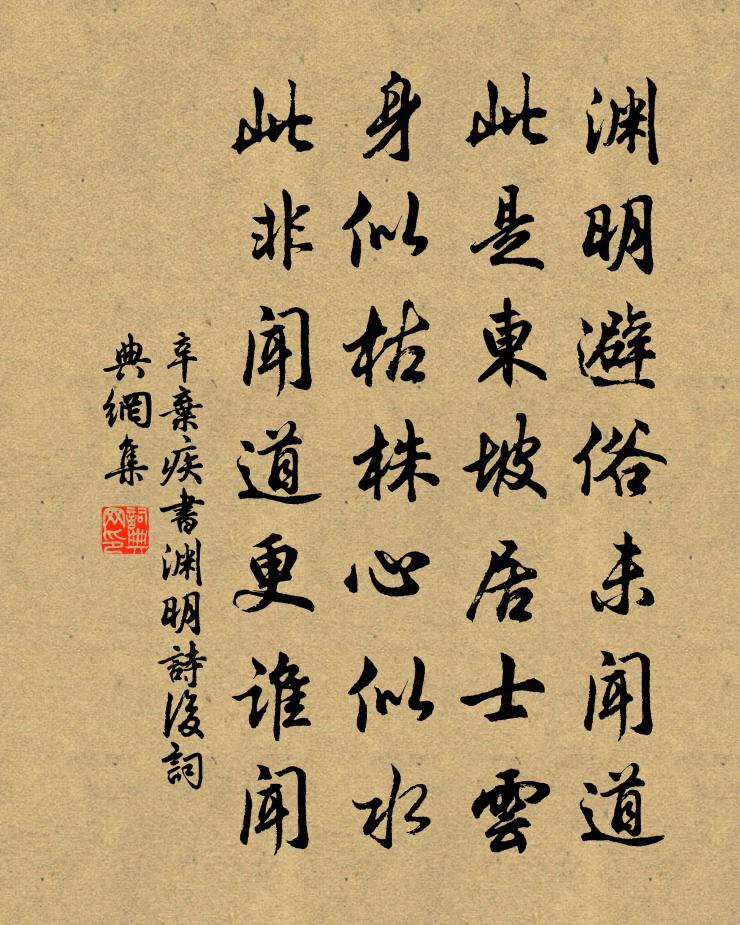 渊明避俗未闻道
此是東坡居士雲
身似枯株心似水
此非闻道更谁闻
辛棄疾書渊明詩後詞
典網集
詞典網印